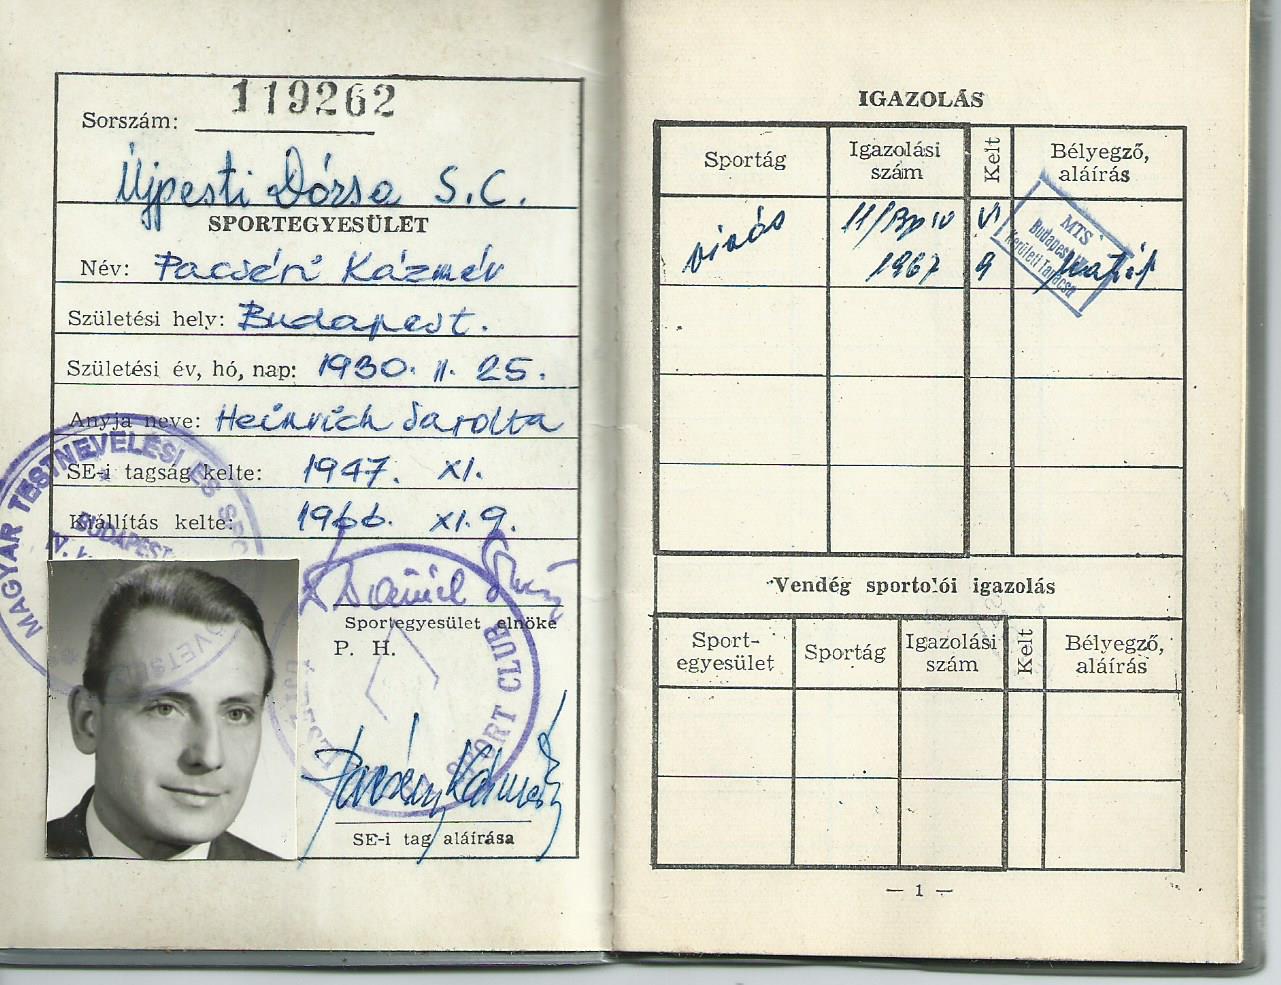 119262
Sorszám:
Újpesti Dózsa S.C.
SPORTEGYESÜLET
Név: Pacséri Kázmér
Születési hely: Budapest.
Születési év, hó, nap: 1930. II. 25.
Anyja neve: Heinrich Sarolta
SE-i tagság kelte: 1947. XI.
Kiállítás kelte: 1966. XI. 9.
MAGYAR TESTNEVELÉSI ÉS SPORT
SZÖVETSÉG
BUDAPEST
IV.
Dániel
Sportegyesület elnöke
P. H.
SPORT CLUB
Pacséri Kázmér
SE-i tag aláírása
IGAZOLÁS
Sportág
Igazolási szám
Kelt
Bélyegző, aláírás
vívás
11/Bp IV
1967
VI
9
MTS
Budapest
Kerületi Tanácsa
Vendég sportolói igazolás
Sport-egyesület
Sportág
Igazolási szám
Kelt
Bélyegző, aláírás
— 1 —